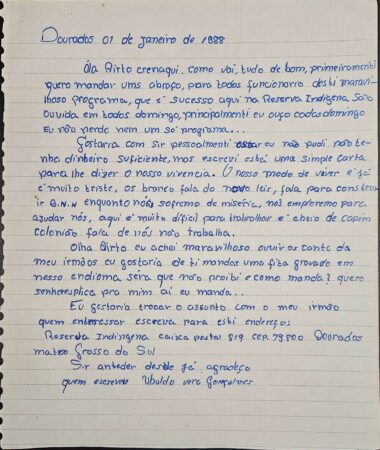 Dourados 01 de Janeiro de 1988
Óla Airto crenaqui, como vai, tudo de bom, primeiramenti
quero mandar ums abraço, para todos funcionarro desti maravi-
lhoso programa, que é sucesso aqui na Reserva Indígena São
Ouvida em todos domingo, principalmenti eu ouço cadasdomingo
Eu nõo perde nem um só programa...
Gostaria com sir pessoalmenti estar eu nõo pudi nõo te-
nho dinheiro suficiente, mas escrevi está uma simple carta
para lhe dizer o nosso vivencia. O nosso modo de viver e já
é muito triste, os branco fala do novo leis, fala para construr
ir B.N.H enquanto nós sofremo de miséria, nós emploremo para
azudar nós, aqui é muito difícil para trabralhar e é cheio de capim
colonião fala de nós nõo trabalha.
Olha Airto eu achei maravilhoso ouvir os canto da
meu irmõos eu gostaria de ti mandas uma fita gravado em
nosso endioma sera que nõo proibi e como manda? quero
senhoresplica pra mim ai eu manda...
Eu gostaria trocar o assunto com o meu irmõo
quem enteressar escreva para esti endereço;
Reserva Indingena caixa postal 819 CEP. 79800 Dourados
mateo Grosso do Sul
Sir anteder desde já agradeço
quem escreveu Ubaldo vera Gonçalves